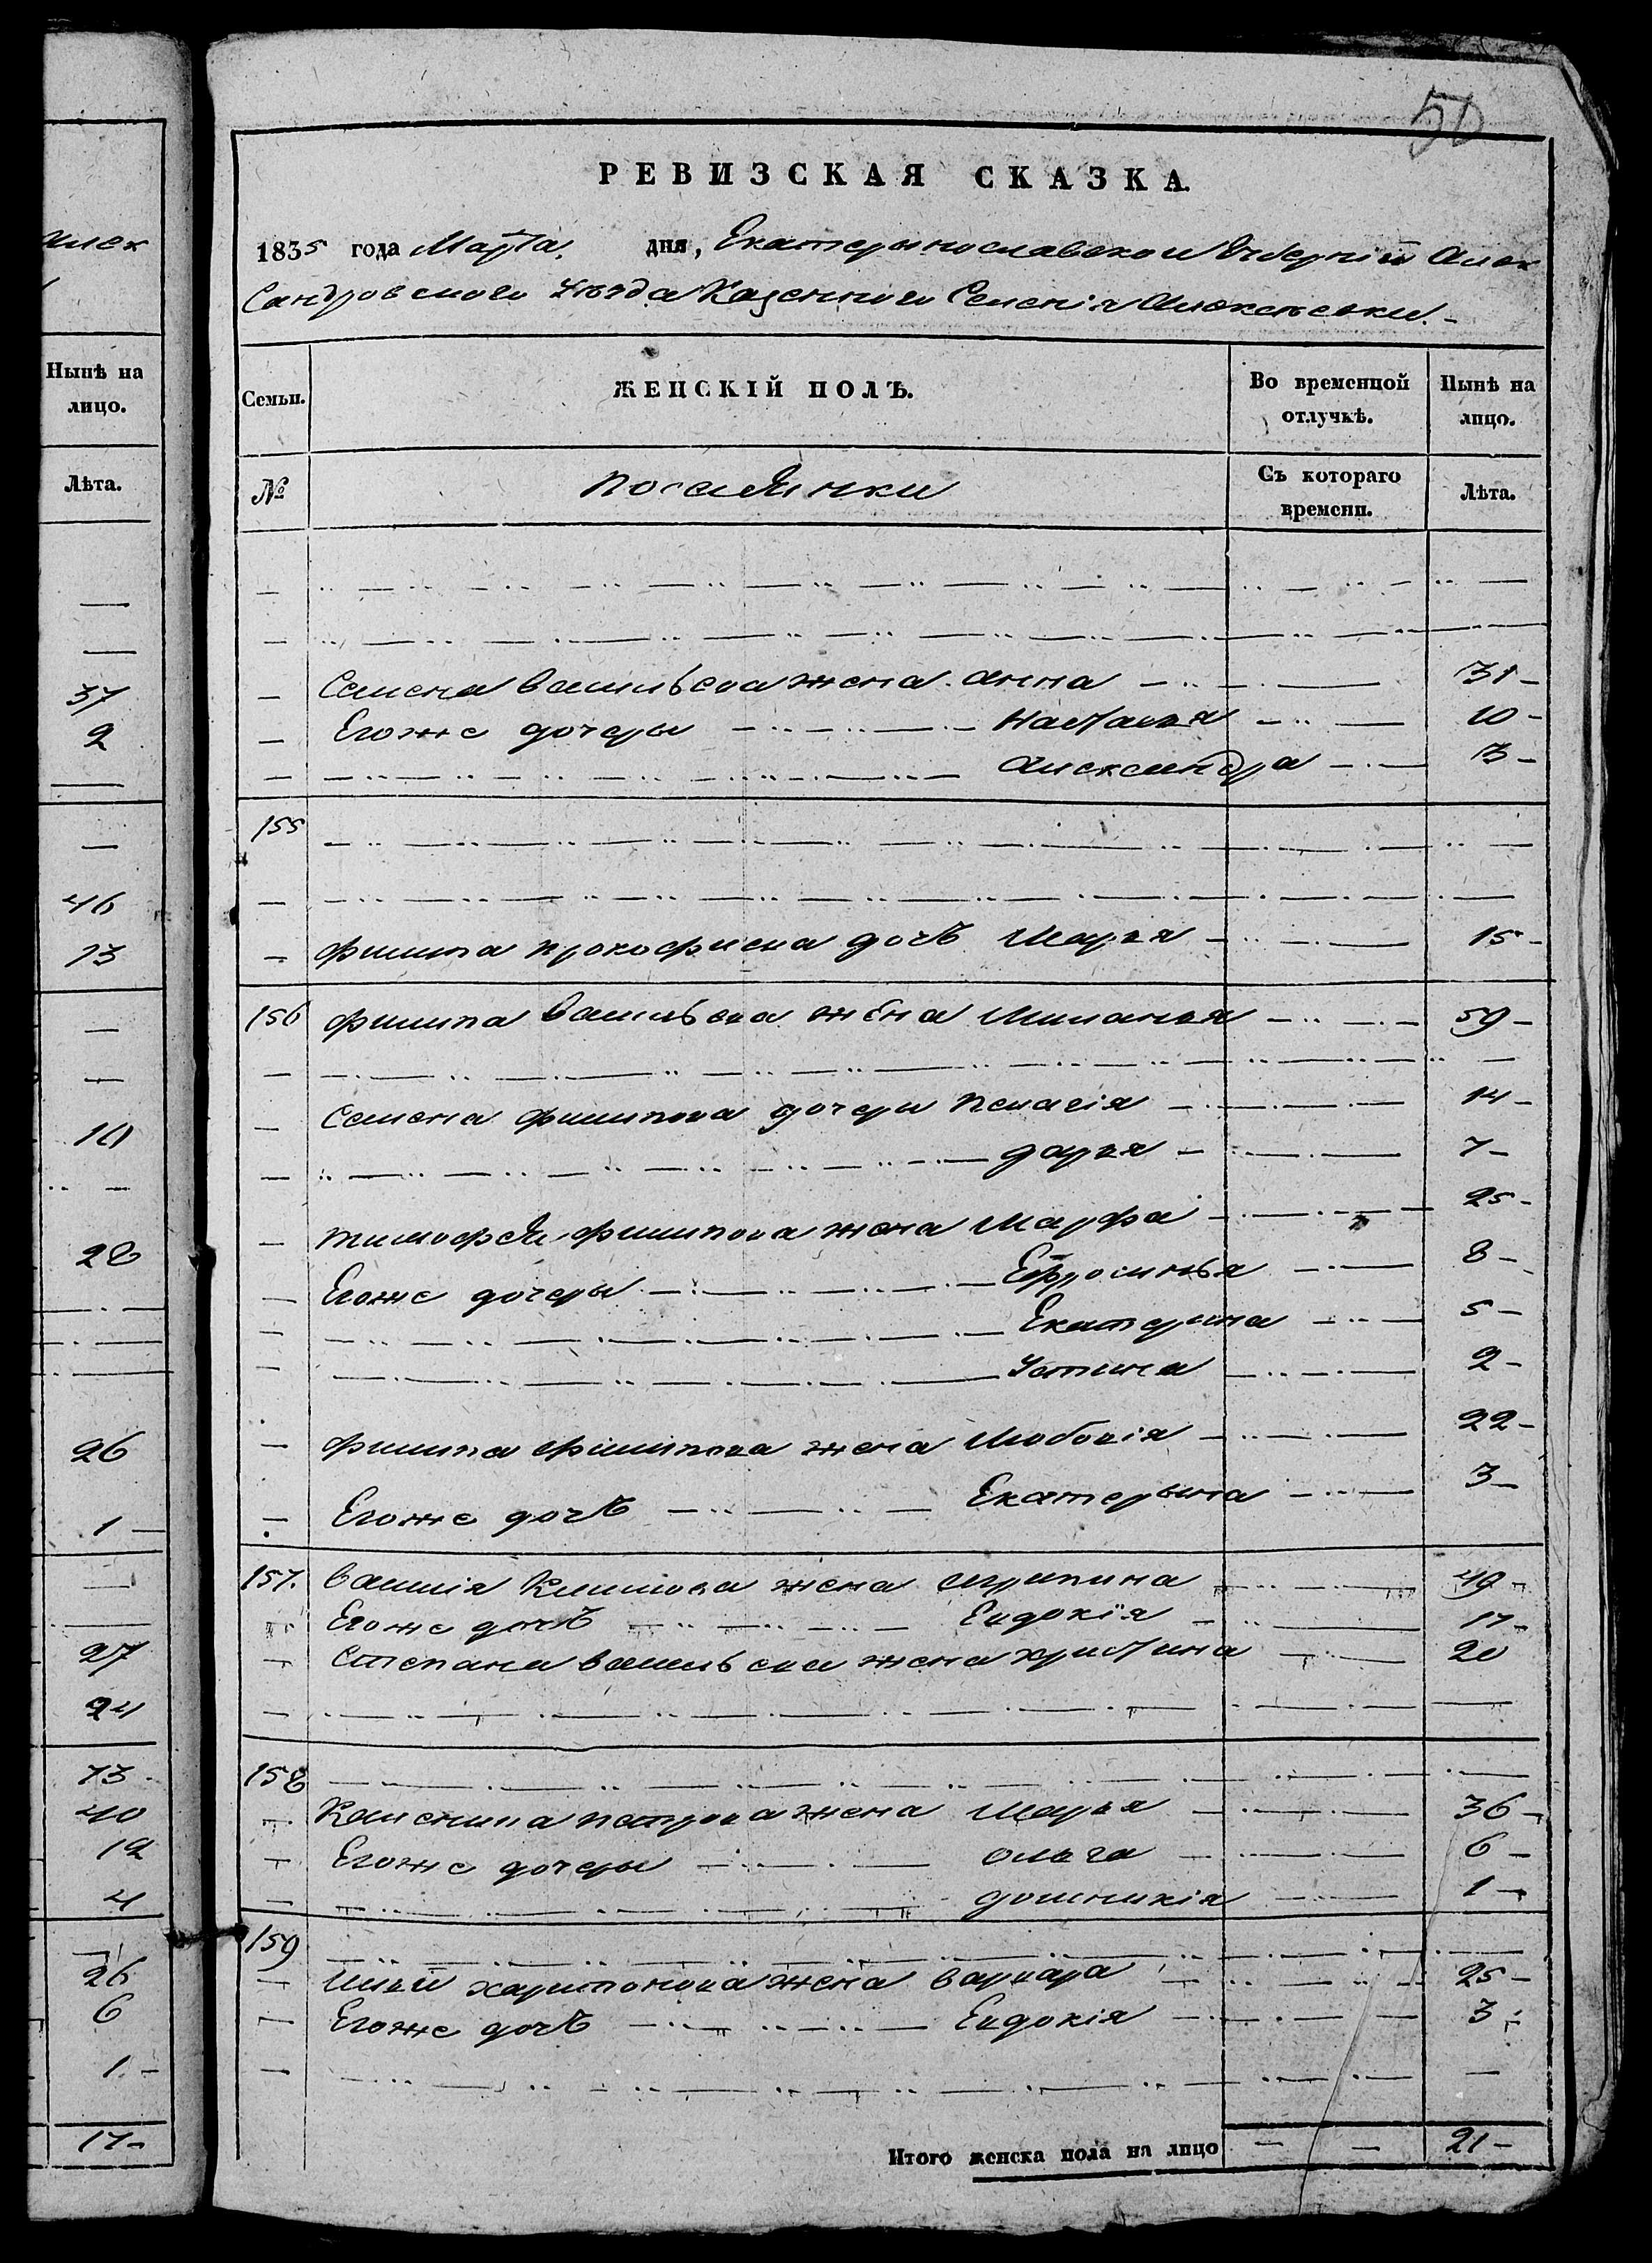 50
РЕВИЗСКАЯ СКАЗКА.
1835 года Марта дня, Екатеринославской Губерніи Алек
сандровского Уезда Казенного Селенія Алексеевки.
Семьи. ЖЕНСКІЙ ПОЛЪ. Во временной отлучкѣ. Нынѣ на лицо.
№ поселянки Съ котораго времени. Лѣта.
Семена Васильева жена Анна 31
Егоже дочеры Насталья 10
Александра 3
155
Филипа Прокофиева дочѣ Марья 15
156 Филипа Васильева жена Миланья 59
Семена Филипова дочери Пелагія 14
Дарья 7
Тимофея Филипова жена Марфа 25
Егоже дочеры Ефросинья 8
Екатерина 5
Устина 2
Филипа Филипова жена 22
Егоже дочѣ Екатерына 3
157. Василія Климова жена Агрипина 49
Егоже дочѣ Евдокія 17
Степана Васильева жена Христина 20
158
Калиника Петрова жена Марья 36
Егоже дочеры Ольга 6
Домникія 1
159
Ильи Харитонова жена Варвара 25
Егоже дочѣ Евдокія 3
Итого женска пола на лицо 21
Алек
Нынѣ на лицо.
Лѣта.
37
2
46
13
10
28
26
1
27
24
73
40
12
4
26
6
1
17